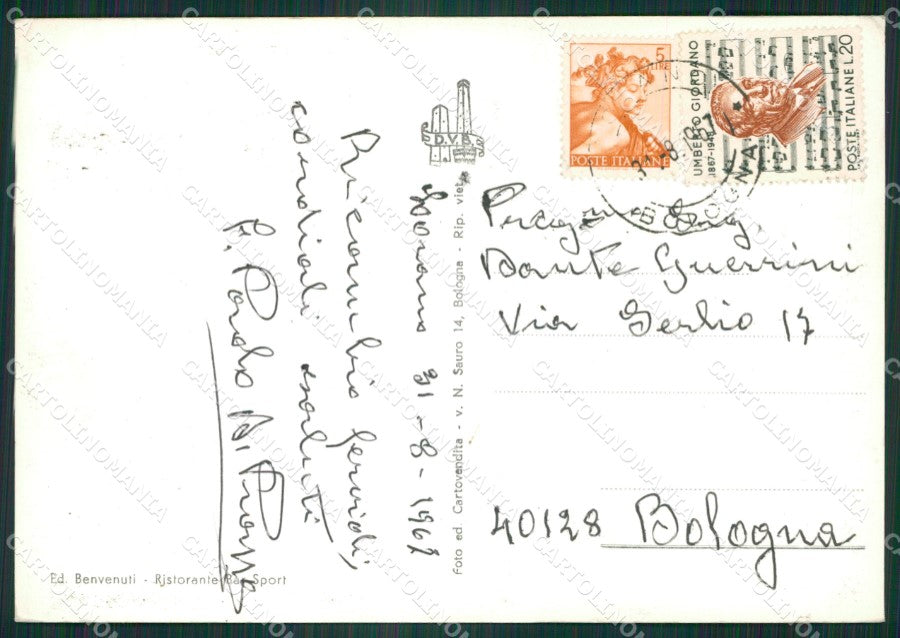 5
LIRE
POSTE ITALIANE
UMBERTO GIORDANO
1867-1948
POSTE ITALIANE L. 20
BOLOGNA
D.V.B.
31-8-1967
Ricambio fervidi,
cordiali saluti
Foto ed Cartovendita - v. N. Sauro 14, Bologna - Rip. viet.
Dante Guerrini
Via Serlio 17
40128 Bologna
Ed. Benvenuti - Ristorante Bar Sport
CARTOLINOMANIA